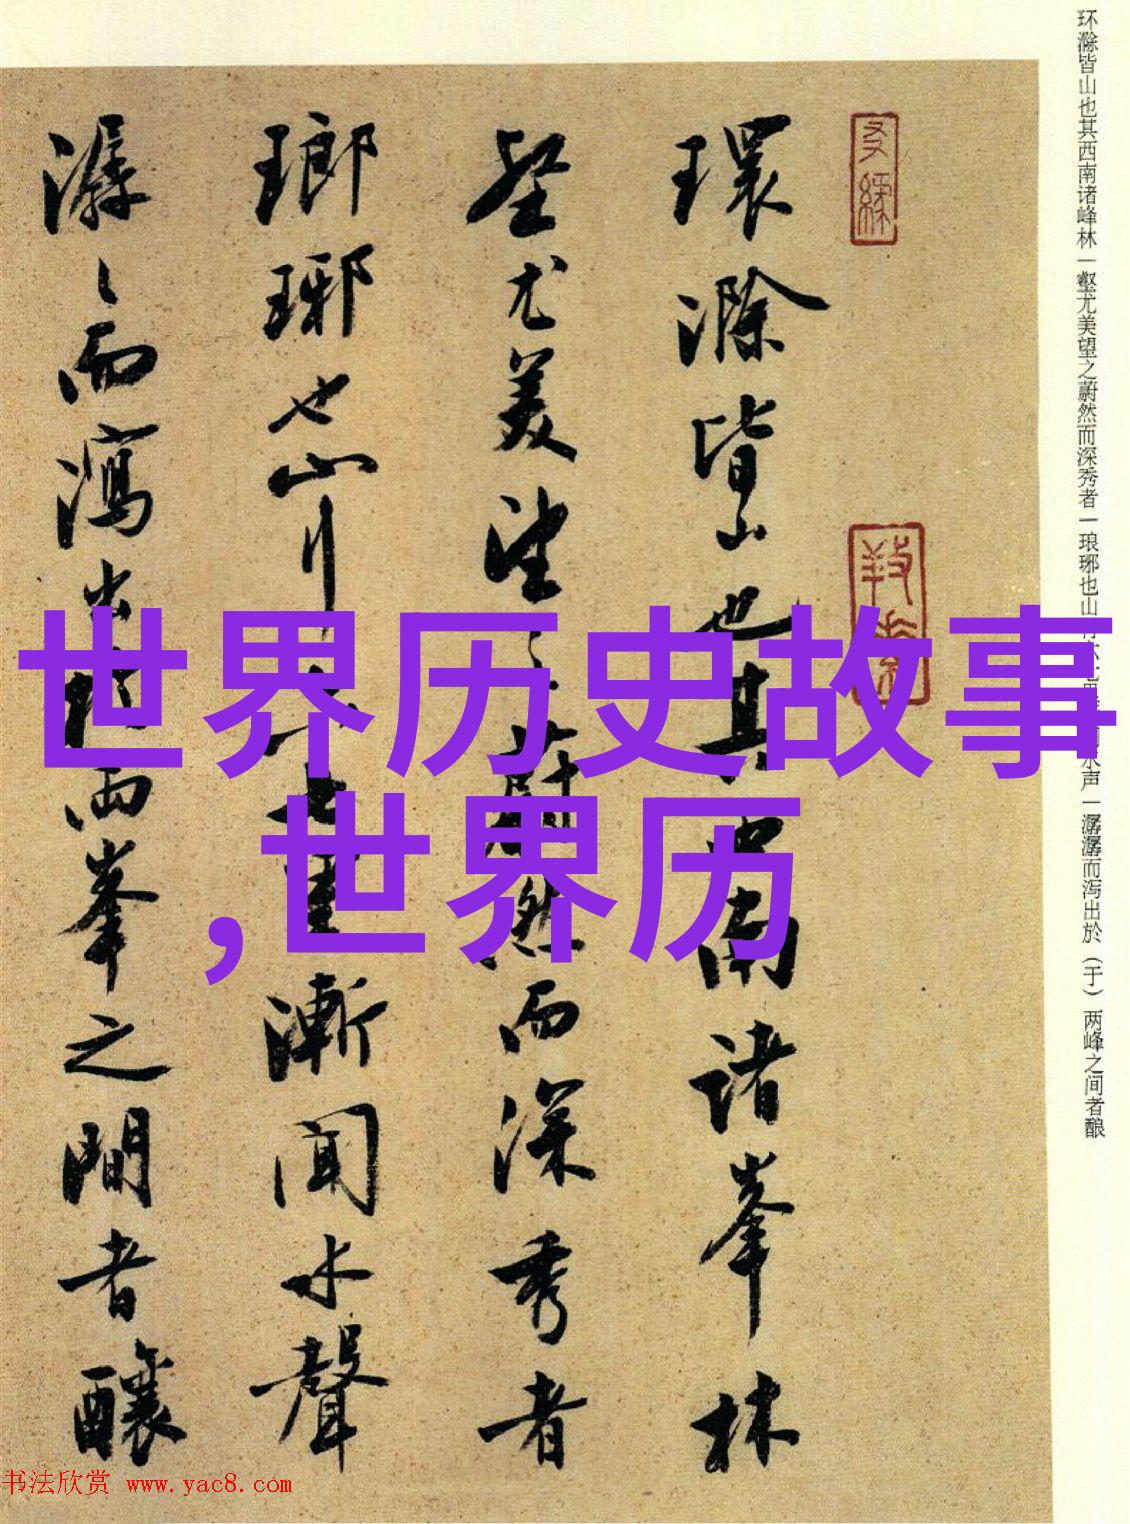 环滁皆山也其西南诸峰林一壑尤美望之蔚然而深秀者一琅琊也山水声一潺潺而泻出於（于）两峰之间者酿
環滁皆山也其西南諸峯林
壑尤美望之蔚然而深秀者
瑯琊也山行六七里漸聞水聲
潺〻而瀉出於兩峯之間者釀
世界历史故事
,世界历
书法欣赏 www.yac8.com